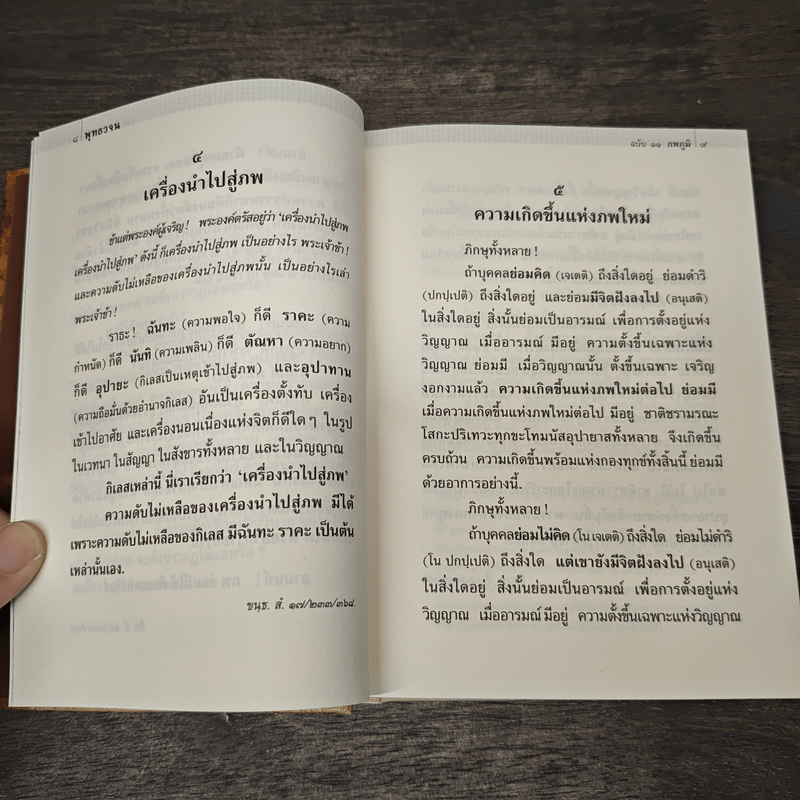 ๘ พุทธวจน
๔
เครื่องนำไปสู่ภพ
ข้าแต่พระองค์ผู้เจริญ! พระองค์ตรัสอยู่ว่า ‘เครื่องนำไปสู่ภพ
เครื่องนำไปสู่ภพ’ ดังนี้ ก็เครื่องนำไปสู่ภพ เป็นอย่างไร พระเจ้าข้า!
และความดับไม่เหลือของเครื่องนำไปสู่ภพนั้น เป็นอย่างไรเล่า
พระเจ้าข้า!
ราธะ! ฉันทะ (ความพอใจ) ก็ดี ราคะ (ความ
กำหนัด) ก็ดี นันทิ (ความเพลิน) ก็ดี ตัณหา (ความอยาก)
ก็ดี อุปายะ (กิเลสเป็นเหตุเข้าไปสู่ภพ) และอุปาทาน
(ความถือมั่นด้วยอำนาจกิเลส) อันเป็นเครื่องตั้งทับ เครื่อง
เข้าไปอาศัย และเครื่องนอนเนื่องแห่งจิตก็ดีใด ๆ ในรูป
ในเวทนา ในสัญญา ในสังขารทั้งหลาย และในวิญญาณ
กิเลสเหล่านี้ นี่เราเรียกว่า ‘เครื่องนำไปสู่ภพ’
ความดับไม่เหลือของเครื่องนำไปสู่ภพ มีได้
เพราะความดับไม่เหลือของกิเลส มีฉันทะ ราคะ เป็นต้น
เหล่านั้นเอง.
ขนฺธ. สํ. ๑๗/๒๓๓/๓๖๘.
ฉบับ ๑๑ ภพภูมิ ๙
๕
ความเกิดขึ้นแห่งภพใหม่
ภิกษุทั้งหลาย!
ถ้าบุคคลย่อมคิด (เจเตติ) ถึงสิ่งใดอยู่ ย่อมดำริ
(ปกปฺเปติ) ถึงสิ่งใดอยู่ และย่อมมีจิตฝังลงไป (อนุเสติ)
ในสิ่งใดอยู่ สิ่งนั้นย่อมเป็นอารมณ์ เพื่อการตั้งอยู่แห่ง
วิญญาณ เมื่ออารมณ์ มีอยู่ ความตั้งขึ้นเฉพาะแห่ง
วิญญาณ ย่อมมี เมื่อวิญญาณนั้น ตั้งขึ้นเฉพาะ เจริญ
งอกงามแล้ว ความเกิดขึ้นแห่งภพใหม่ต่อไป ย่อมมี
เมื่อความเกิดขึ้นแห่งภพใหม่ต่อไป มีอยู่ ชาติชรามรณะ
โสกะปริเทวะทุกขะโทมนัสอุปายาสทั้งหลาย จึงเกิดขึ้น
ครบถ้วน ความเกิดขึ้นพร้อมแห่งกองทุกข์ทั้งสิ้นนี้ ย่อมมี
ด้วยอาการอย่างนี้.
ภิกษุทั้งหลาย!
ถ้าบุคคลย่อมไม่คิด (โน เจเตติ) ถึงสิ่งใด ย่อมไม่ดำริ
(โน ปกปฺเปติ) ถึงสิ่งใด แต่เขายังมีจิตฝังลงไป (อนุเสติ)
ในสิ่งใดอยู่ สิ่งนั้นย่อมเป็นอารมณ์ เพื่อการตั้งอยู่แห่ง
วิญญาณ เมื่ออารมณ์ มีอยู่ ความตั้งขึ้นเฉพาะแห่งวิญญาณ